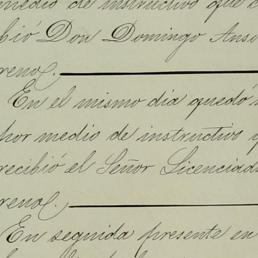 medio de instructivo que
bió Don Domingo Anso
reno.
En el mismo día quedó
por medio de instructivo q
recibió el Señor Licenciad
reno,
En seguida presente en